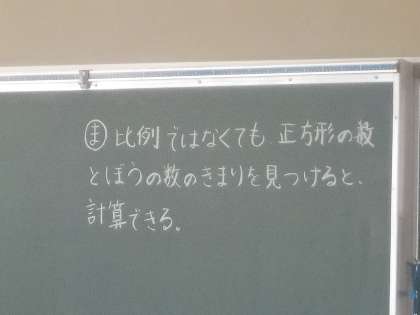 ま 比例ではなくても 正方形の数
とぼうの数のきまりを見つけると、
計算できる。